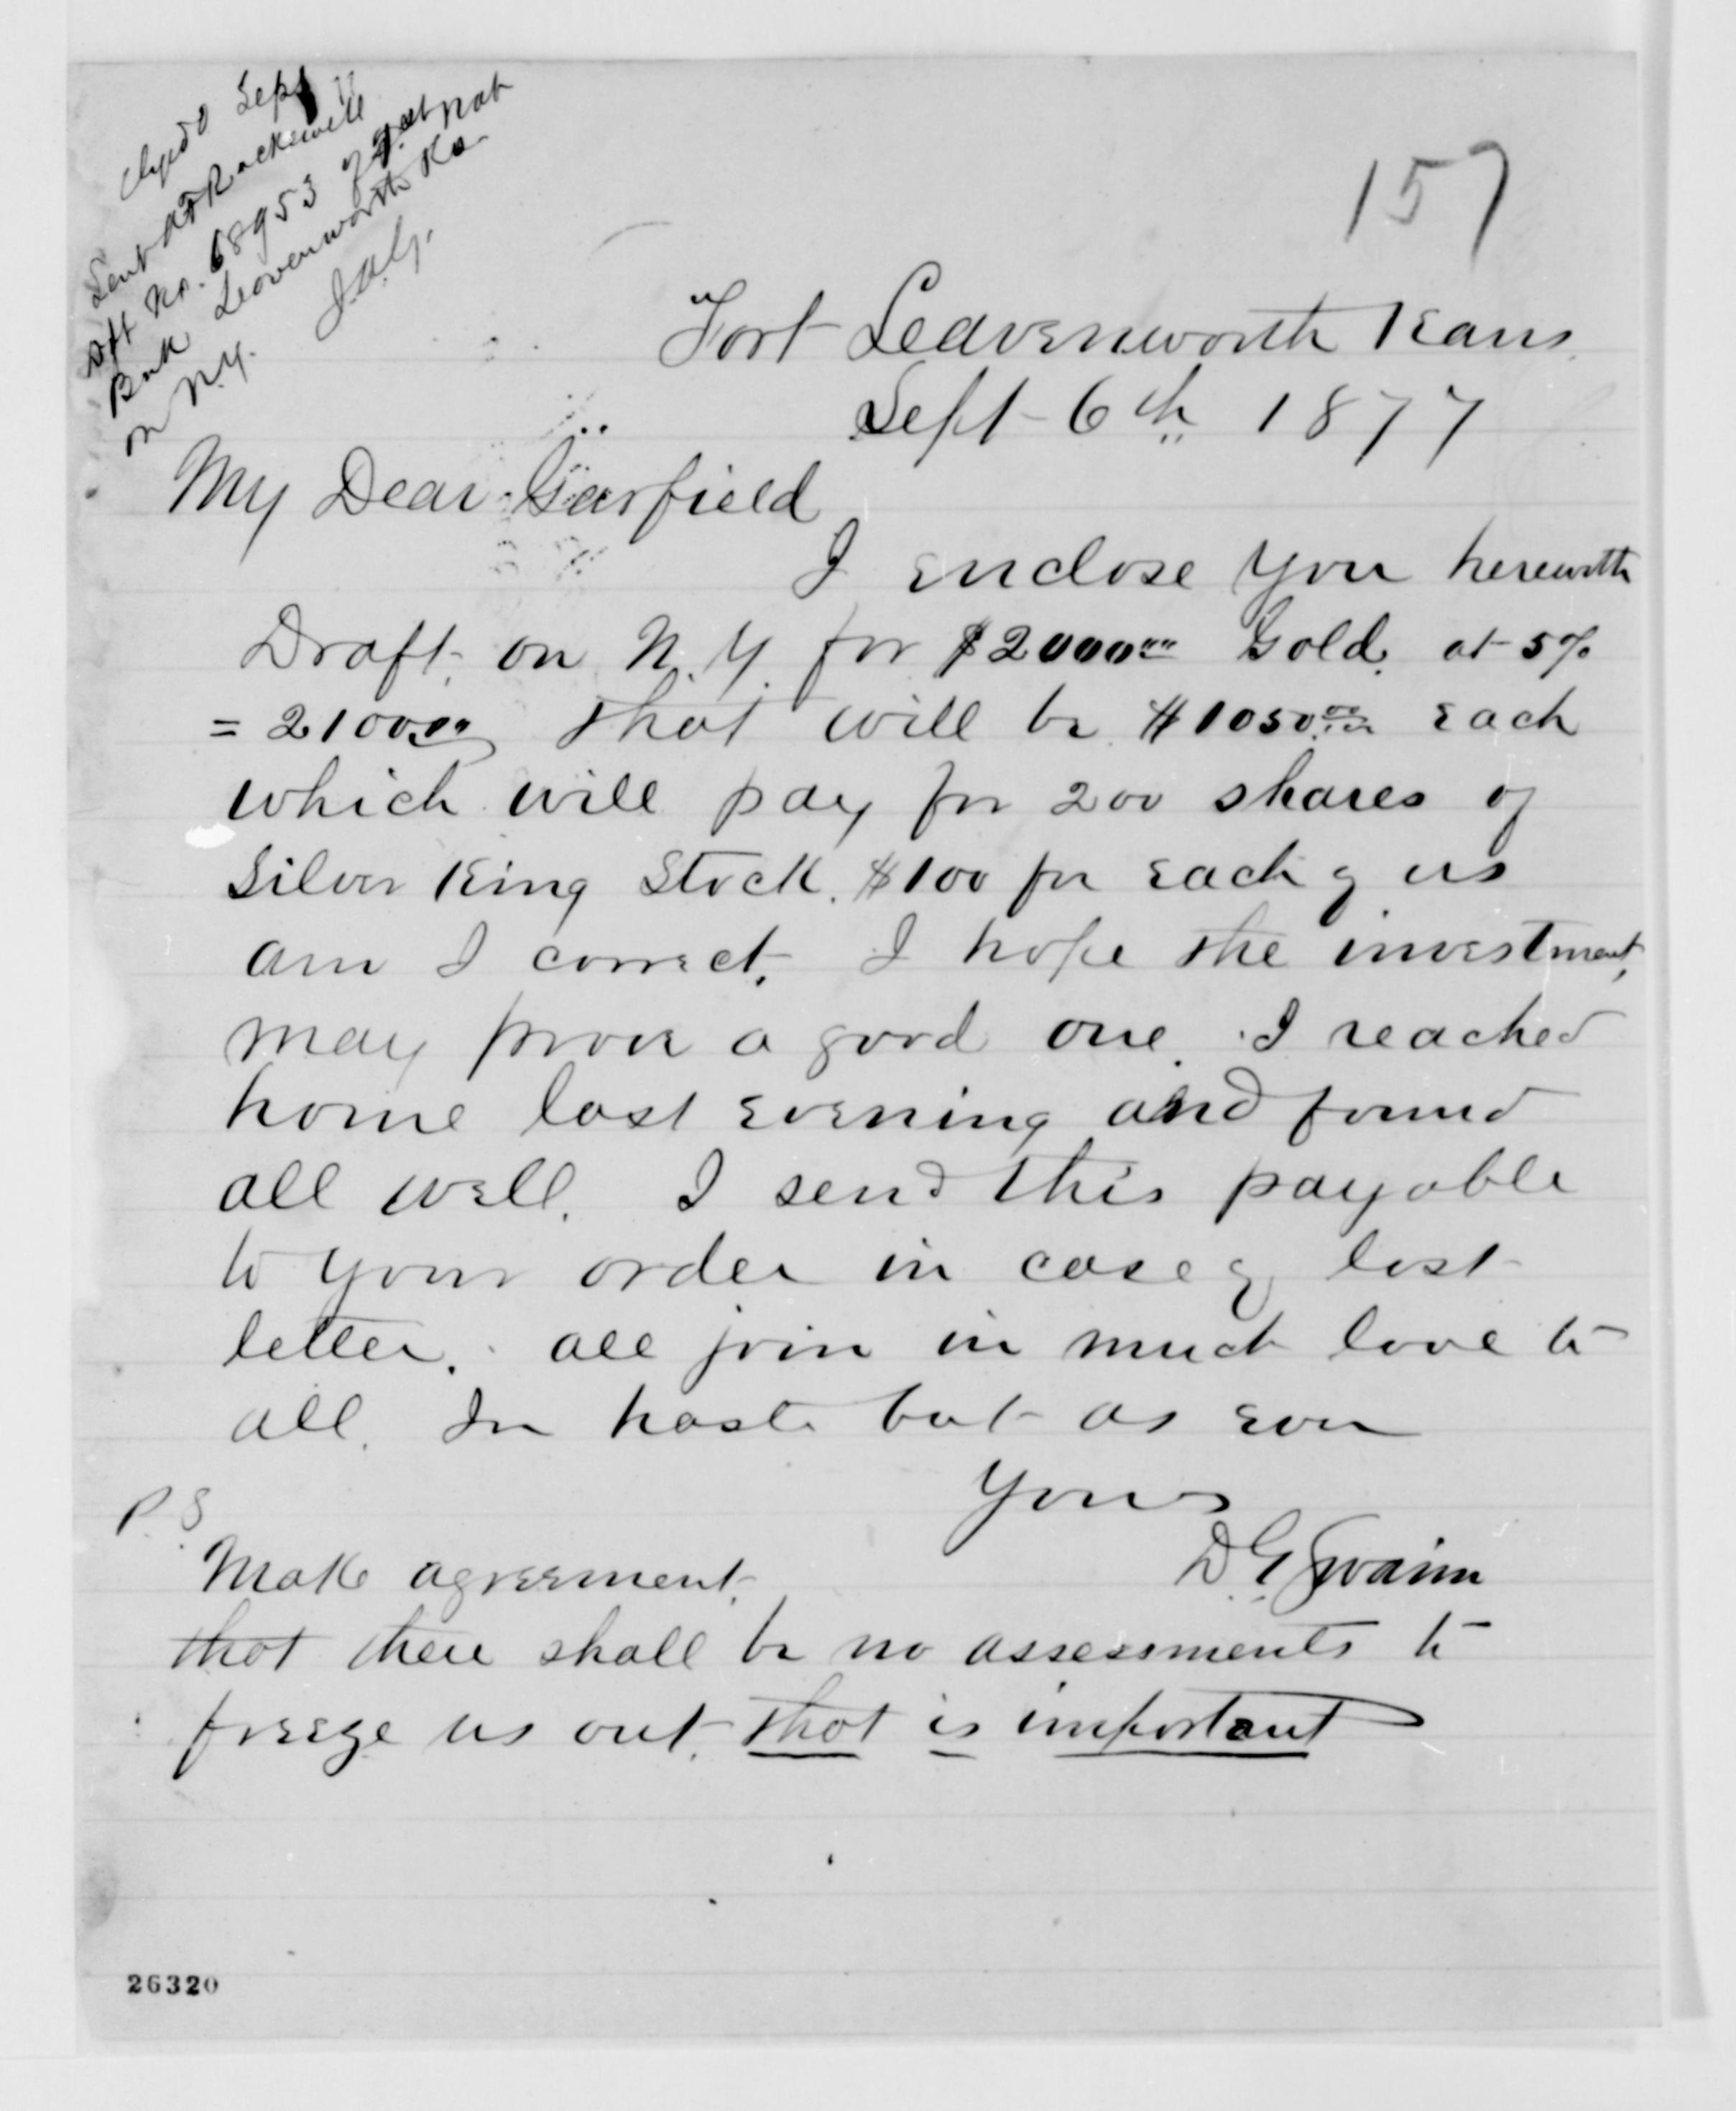 Sept 11
Sent A F Rockwell
Dft No. 68953 of 1st Nat
Bank Leavenworth Ks
on N.Y. J.A.G.
157
Fort Leavenworth Kans.
Sept 6th 1877
My Dear Garfield
I enclose you herewith
Draft on N.Y. for $2000.00 Gold at 5%
= 2100.00 that will be $1050.00 each
which will pay for 200 shares of
Silver King Stock. $100 for each of us
am I correct. I hope the investment
may prove a good one. I reached
home last evening and found
all well. I send this payable
to your order in case of lost
letter. all join in much love to
all. In haste but as ever
Yours
D G Swaim
P.S
Make agreement
that there shall be no assessments to
freeze us out. that is important
26320